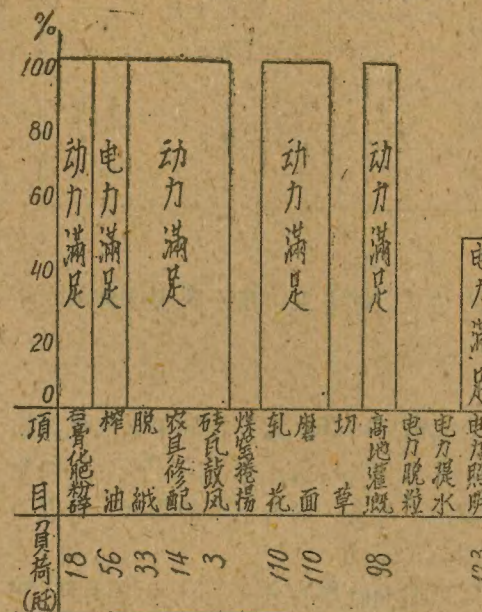 %
100
80
60
40
20
0
动力滿足
电力滿足
动力滿足
动力滿足
动力滿足
电力滿足
項目
石膏化肥粉碎
榨油
脱絨
农具修配
砖瓦鼓风
煤窑捲揚
轧花
磨面
切草
高地灌溉
电力脱粒
电力提水
电力照明
負荷(瓩)
18
56
33
14
3
110
110
98
123